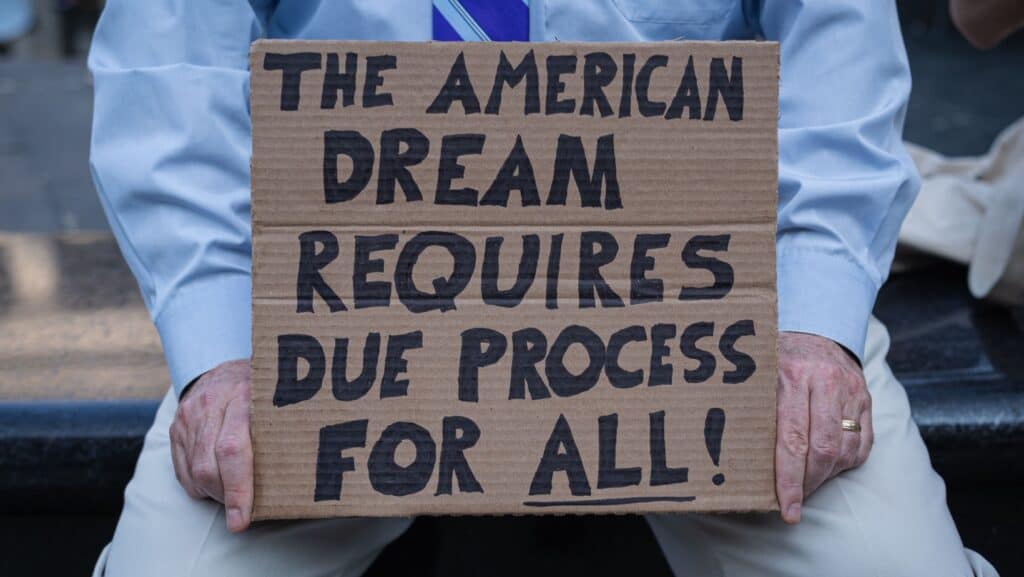 THE AMERICAN
DREAM
REQUIRES
DUE PROCESS
FOR ALL!